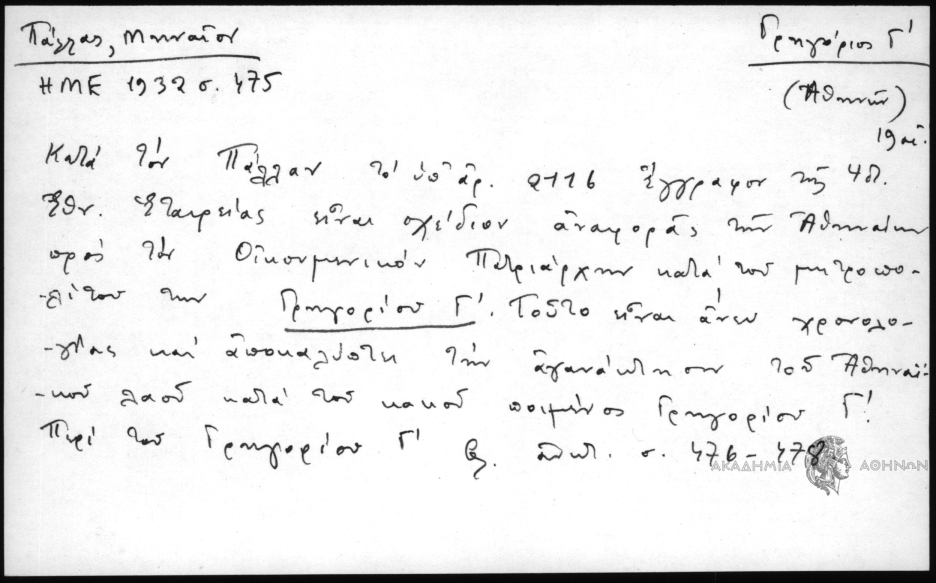 Πάλλας, Μηναῖον
Γρηγόριος Γ΄
ΗΜΕ 1932 σ. 475
(Ἀθηνῶν)
19 αἰ.
Κατά τόν Πάλλαν τό ὑπ' ἀρ. 2116 ἔγγραφον τῆς
Ἐθν. Ἑταιρείας εἶναι σχέδιον ἀναφορᾶς τῶν Ἀθηναίων
πρός τόν Οἰκουμενικόν Πατριάρχην κατά τοῦ μητροπο-
-λίτου των Γρηγορίου Γ΄. Τοῦτο εἶναι ἄνευ χρονολο-
-γίας καί ἀποκαλύπτει τήν ἀγανάκτησιν τοῦ Ἀθηναϊ-
-κοῦ λαοῦ κατά τοῦ κακοῦ ποιμένος Γρηγορίου Γ΄.
Περί τοῦ Γρηγορίου Γ΄ βλ. αὐτ. σ. 476-478
ΑΚΑΔΗΜΙΑ ΑΘΗΝΩΝ